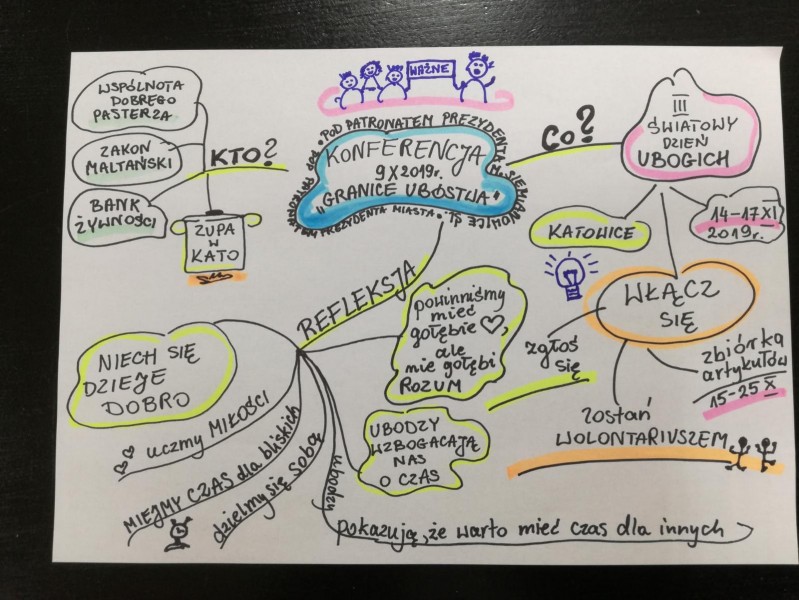 WAŻNE
POD PATRONATEM PREZYDENTA M. SIEMIANOWICE ŚL.
POD PATRONATEM PREZYDENTA MIASTA
KONFERENCJA
9 X 2019r.
"GRANICE UBÓSTWA"
KTO?
WSPÓLNOTA
DOBREGO
PASTERZA
ZAKON
MALTAŃSKI
BANK
ŻYWNOŚCI
ZUPA
W
KATO
CO?
III
ŚWIATOWY
DZIEŃ
UBOGICH
KATOWICE
14-17 XI
2019r.
WŁĄCZ
SIĘ
zgłoś
się
zbiórka
artykułów
15-25 X
zostań
WOLONTARIUSZEM
REFLEKSJA
powinniśmy
mieć
gołębie ♡,
ale
nie gołębi
ROZUM
NIECH SIĘ
DZIEJE
DOBRO
uczmy MIŁOŚCI
MIEJMY CZAS dla bliskich
dzielmy się sobą
UBODZY
WZBOGACAJĄ
NAS
O CZAS
ubodzy
pokazują, że warto mieć czas dla innych